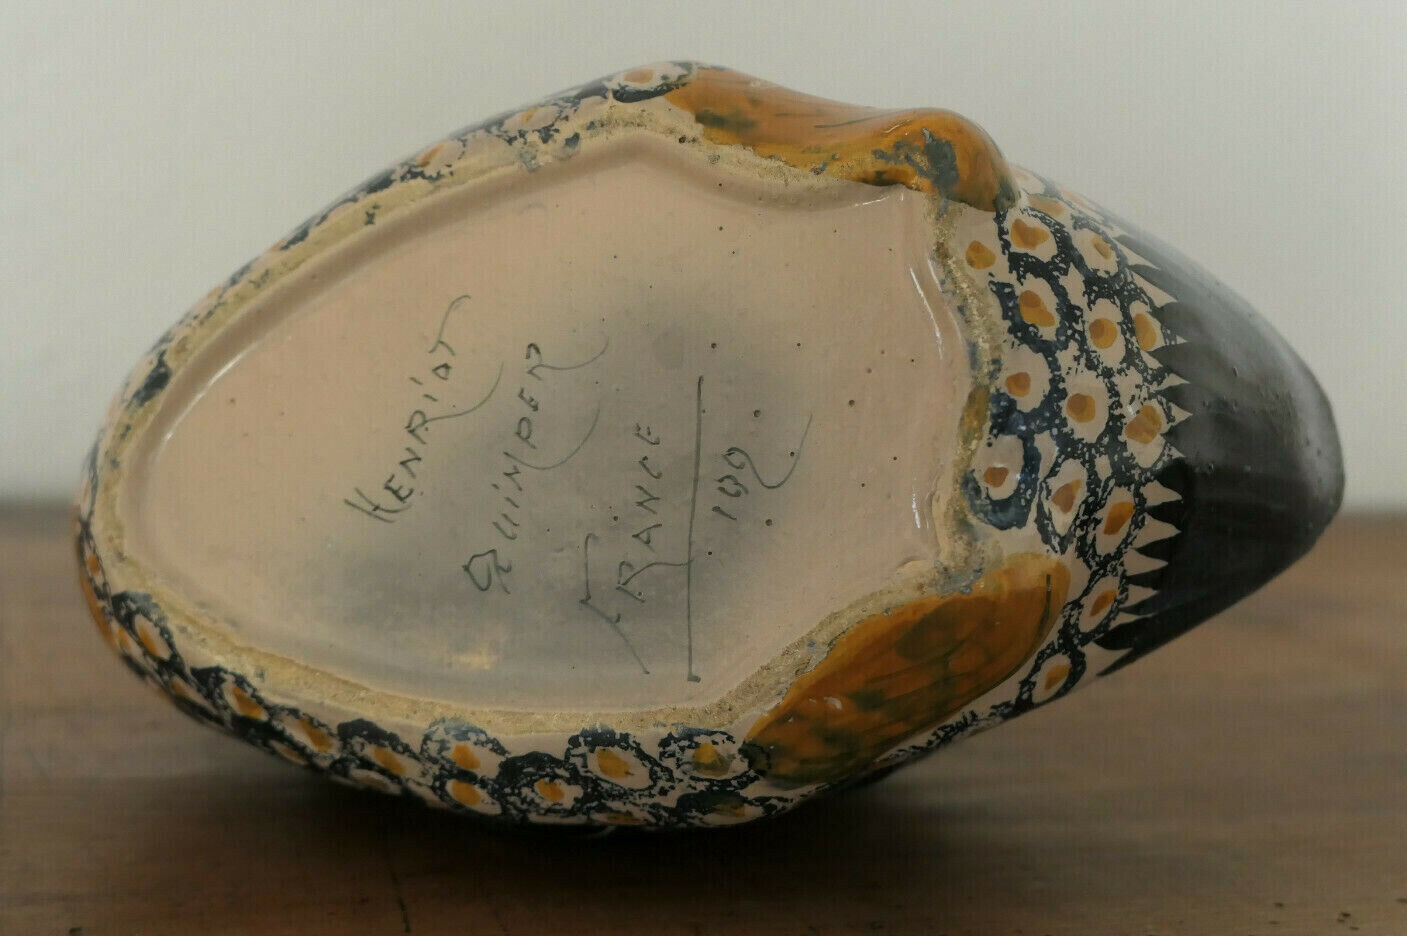 HENRiOT
QUiMPER
FRANCE
109